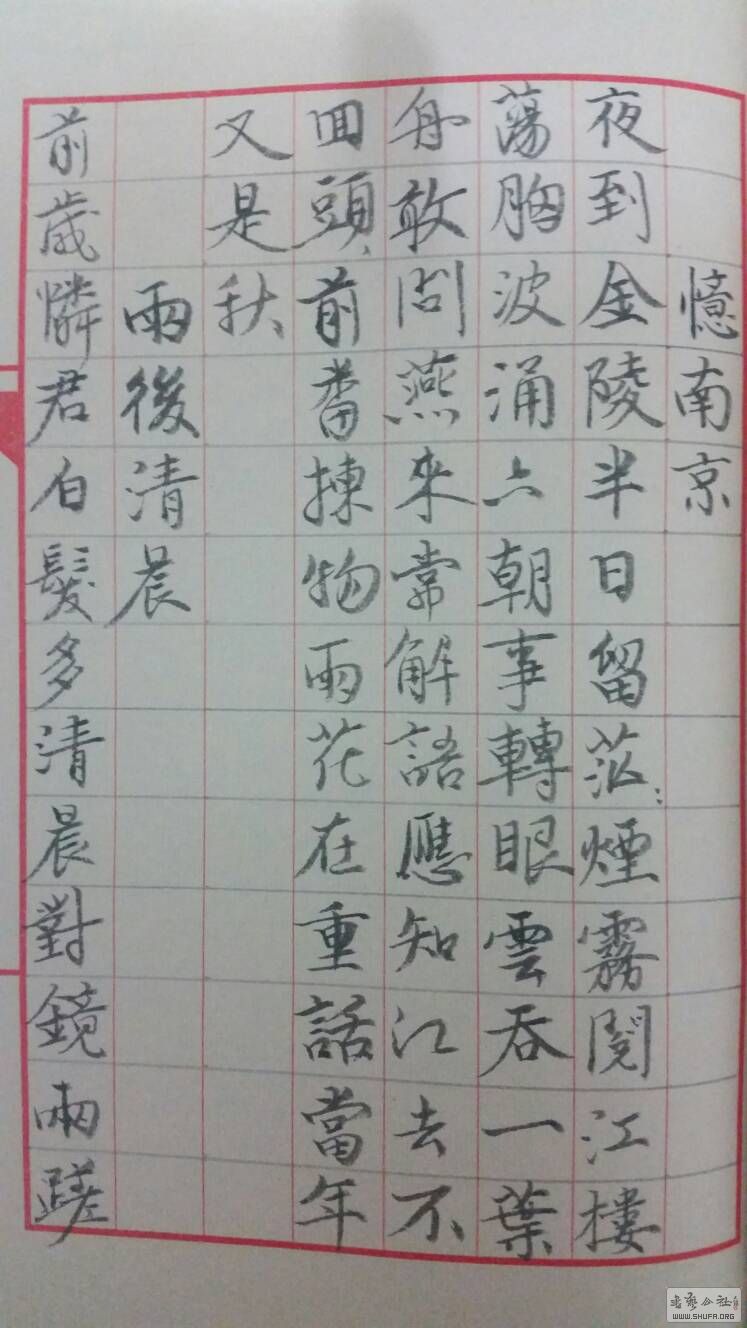 憶南京
夜到金陵半日留茫煙霧閱江樓
蕩胸波涌六朝事轉眼雲吞一葉
舟敢問燕來常解語應知江去不
回頭前番揀物雨花在重話當年
又是秋
雨後清晨
前歲憐君白髮多清晨對鏡兩蹉
WWW.SHUFA.ORG